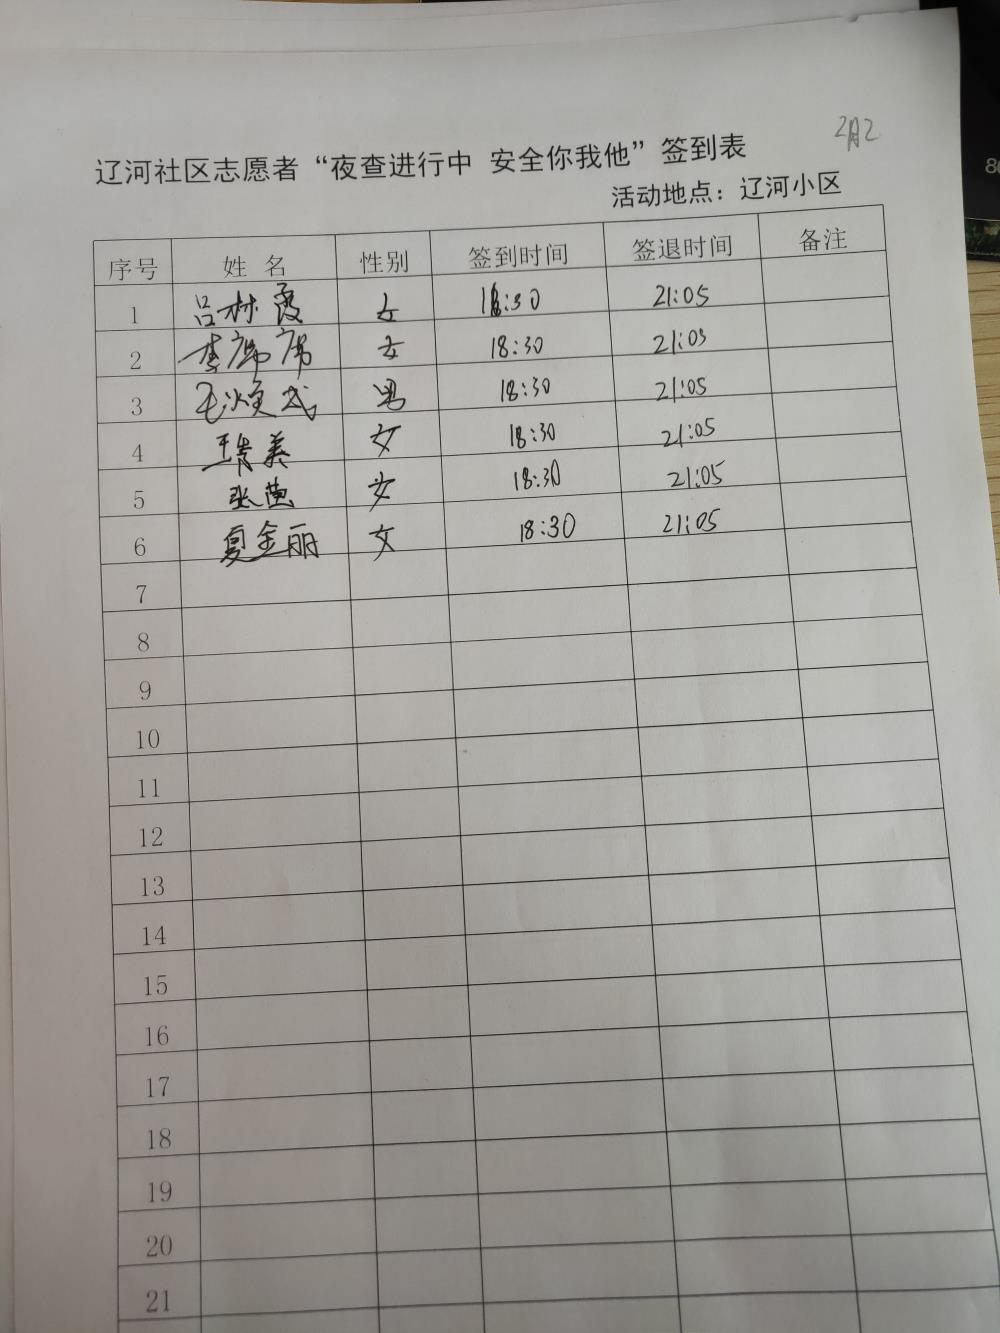 2月2
辽河社区志愿者“夜查进行中 安全你我他”签到表
活动地点：辽河小区
序号 姓 名 性别 签到时间 签退时间 备注
1 吕林霞 女 18:30 21:05
2 李席席 女 18:30 21:05
3 毛 武 男 18:30 21:05
4 美 女 18:30 21:05
5 张茵 女 18:30 21:05
6 夏金丽 女 18:30 21:05
7
8
9
10
11
12
13
14
15
16
17
18
19
20
21